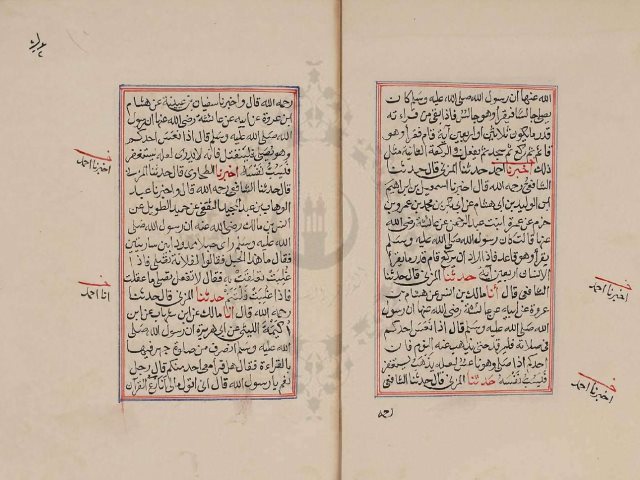 الله عنها ان رسول الله صلى الله عليه وسلم كان
يصلي جالسا فيقرأ وهو جالس فاذا بقي من قراءته
قدر ما يكون ثلاثين او اربعين اية قام فقرأ وهو
قائم ثم ركع ثم سجد ثم يفعل في الركعة الثانية مثل
ذلك اخبرنا احمد حدثنا المزني قال حدثنا
الشافعي رحمه الله قال اخبرنا اسمعيل بن ابراهيم
الوليد بن ابي هشام عن ابي بكر بن محمد بن عمرو بن
حزم عن عمرة ابنت عبد الرحمن عن عائشة رضي الله
عنها قالت كان رسول الله صلى الله عليه وسلم
يقرأ وهو قاعد فاذا اراد ان يركع قام قدر ما يقرأ
الانسان اربعين اية حدثنا المزني قال حدثنا
الشافعي قال أنا مالك بن انس عن هشام بن
عروة عن ابيه عن عائشة رضي الله عنها ان رسول الله
صلى الله عليه وسلم قال اذا نعس احدكم
في صلاته فليرقد حتى يذهب عنه النوم فان
احدكم اذا صلى وهو ناعس لعله يذهب يستغفر
فليسب نفسه حدثنا المزني قال حدثنا الشافعي
رحمه
اخبرنا احمد
اخبرنا احمد
رحمه الله قال واخبرنا سفيان بن عيينة عن هشام
بن عروة عن ابيه عن عائشة رضي الله عنها ان رسول
الله صلى الله عليه وسلم قال اذا نعس احدكم
وهو يصلي فلينفتل فانه لا يدري لعله يستغفر
فليسب نفسه اخبرنا الطحاوي قال حدثنا المزني
قال حدثنا الشافعي رحمه الله قال واخبرنا عبد
الوهاب بن عبد المجيد الثقفي عن حميد الطويل عن
انس بن مالك رضي الله عنه ان رسول الله صلى
الله عليه وسلم راى حبلا ممدودا بين ساريتين
فقال ما هذا الحبل فقالوا لفلانة تصلي فاذا
غلبت تعلقت به فقال لا تفعل تصلي ما عقلت
فاذا غلبت فلتنم حدثنا المزني قال حدثنا الشافعي
رحمه الله قال أنا مالك عن ابن شهاب عن ابن
اكيمة الليثي عن ابي هريرة ان رسول الله صلى
الله عليه وسلم انصرف من صلاة جهر فيها
بالقراءة فقال هل قرأ معي احد منكم قال رجل
نعم يا رسول الله قال اني اقول مالي انازع القرآن
اخبرنا احمد
انا احمد